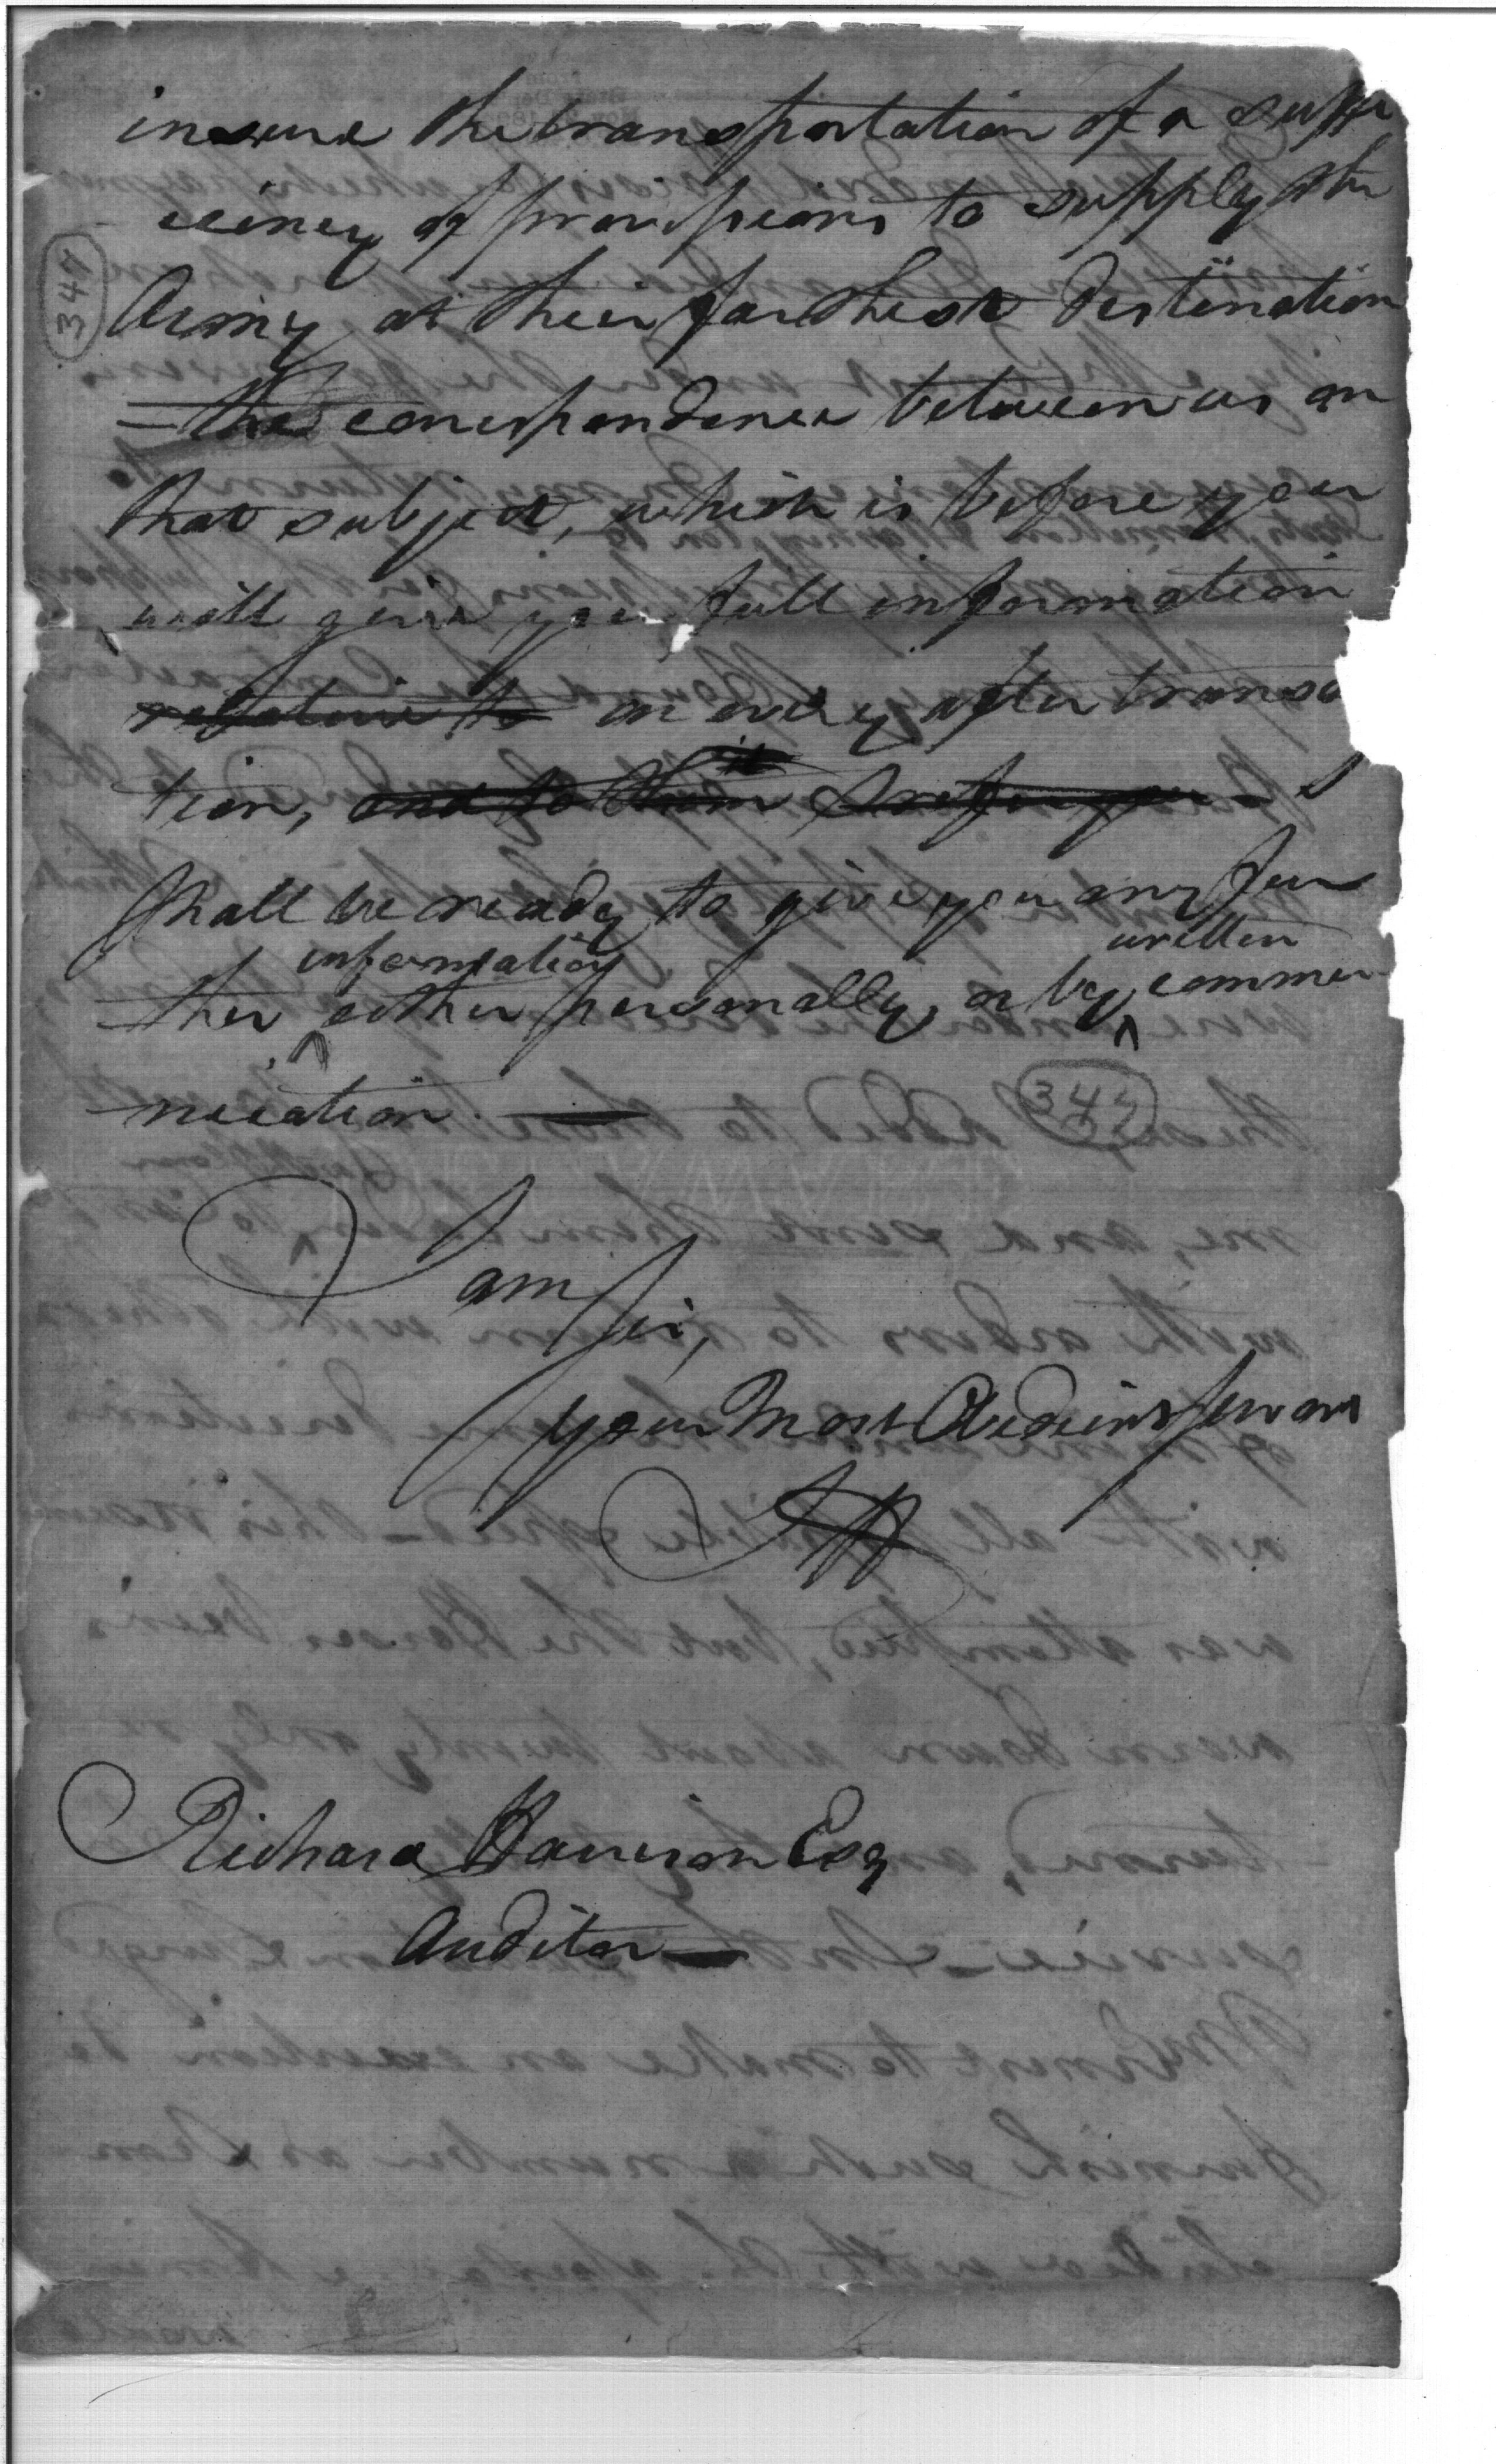 insure the transportation of a suffi
ciency of provisions to supply the
Army at their farthest destination
— the correspondence between us on
that subject, which is before you
will give you full information
relative to on every after transac
tion, and to them it I refer you — I
shall be ready to give you any fur
information written
ther either personally, or by commu
nication. —
344
344
I am
Sir,
your Most Obedient Servant
Richard Harrison Esq
Auditor —